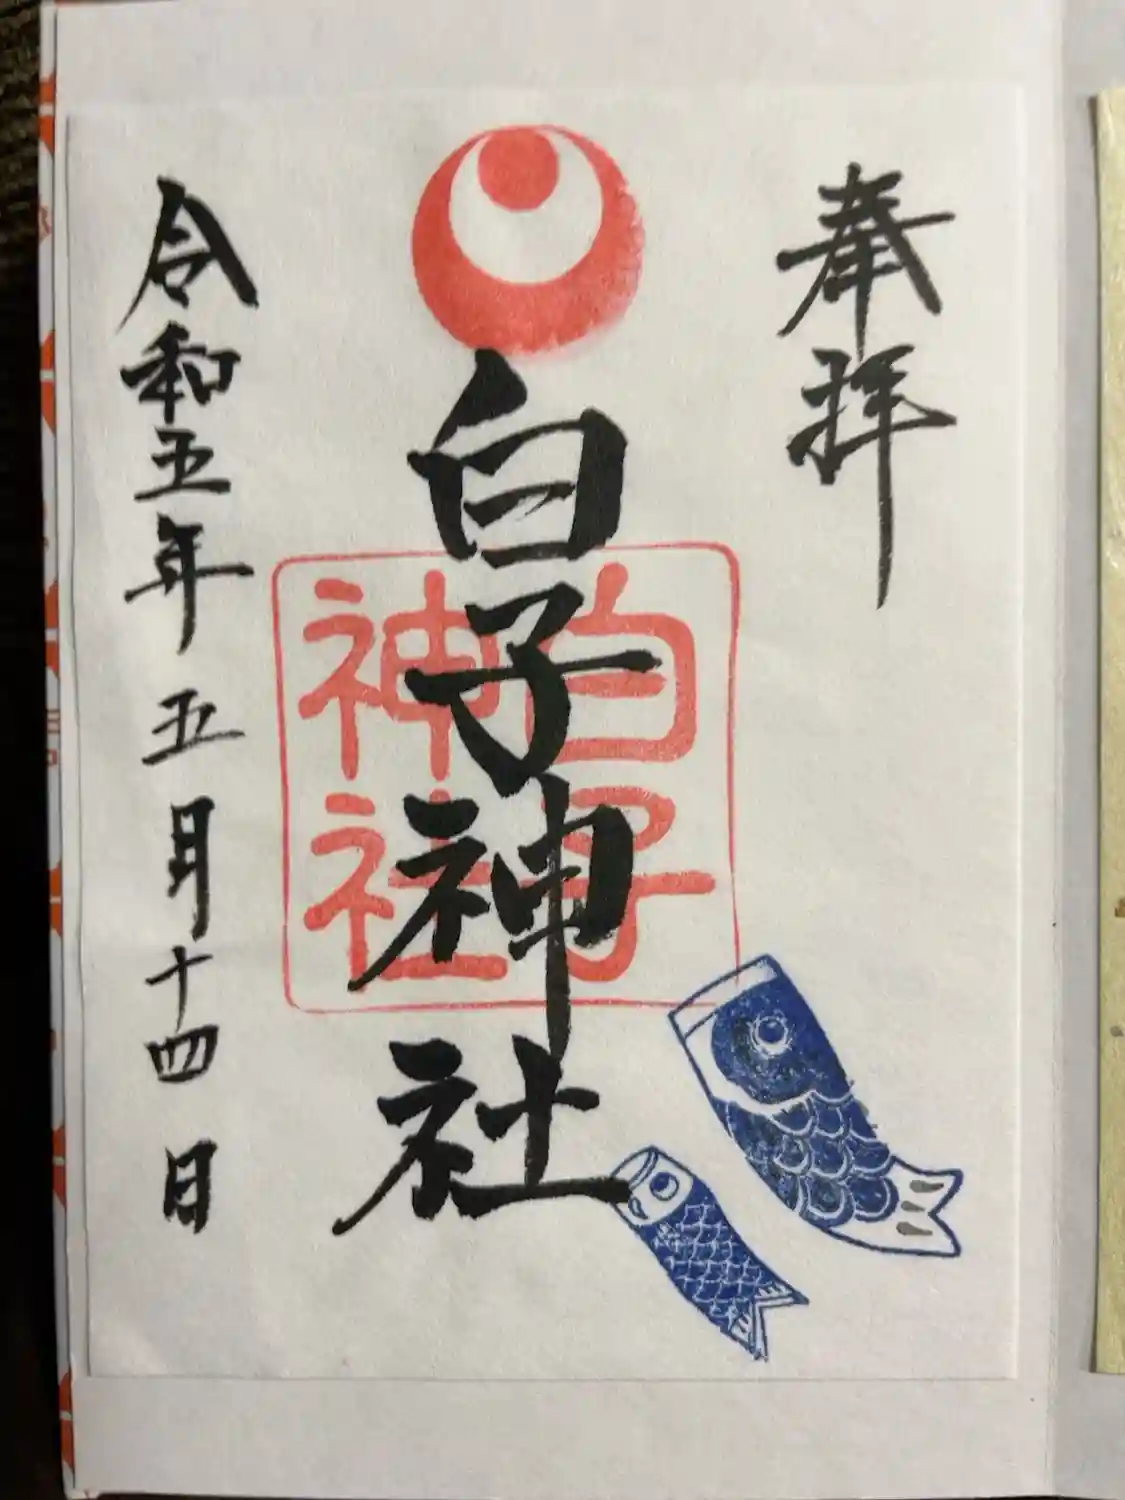 奉拝
白子神社
白子
神社
令和五年五月十四日